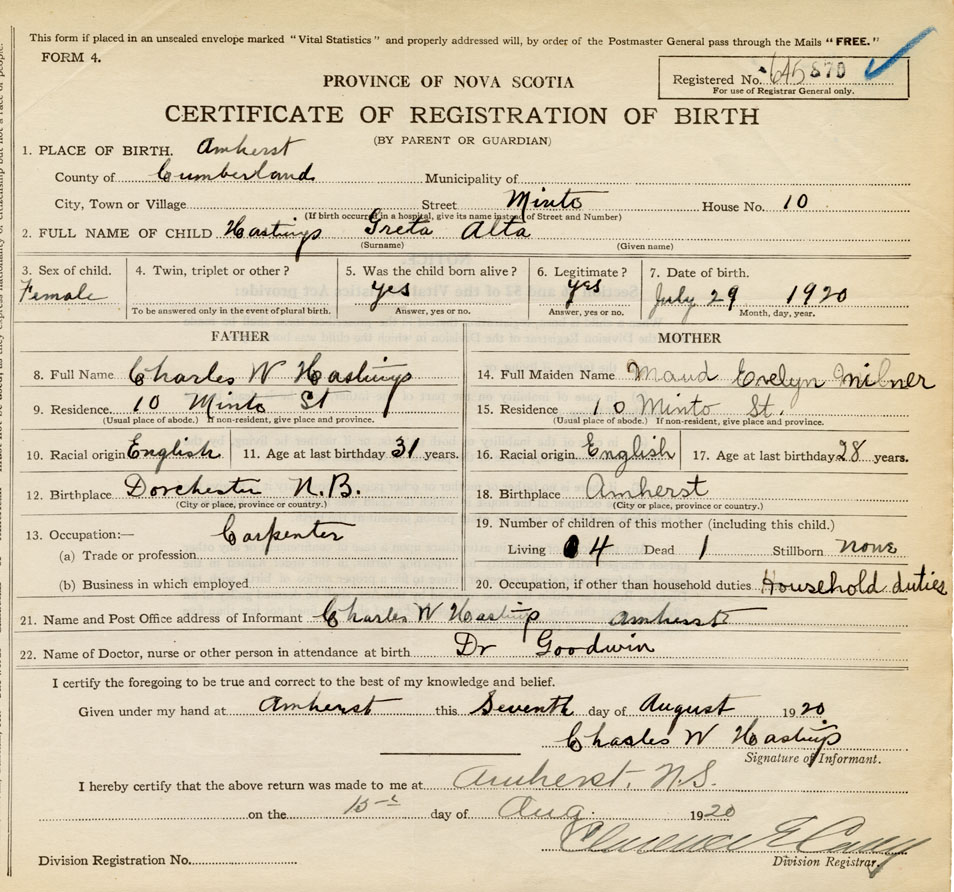 This form if placed in an unsealed envelope marked "Vital Statistics" and properly addressed will, by order of the Postmaster General pass through the Mails "FREE."
FORM 4.
Registered No. 645870
For use of Registrar General only.
PROVINCE OF NOVA SCOTIA
CERTIFICATE OF REGISTRATION OF BIRTH
(BY PARENT OR GUARDIAN)
1. PLACE OF BIRTH. Amherst
County of Cumberland Municipality of
City, Town or Village Street Minto House No. 10
(If birth occurred in a hospital, give its name instead of Street and Number)
2. FULL NAME OF CHILD Hastings Greta Alta
(Surname) (Given name)
3. Sex of child. 4. Twin, triplet or other? 5. Was the child born alive? 6. Legitimate? 7. Date of birth.
Female yes yes July 29 1920
To be answered only in the event of plural birth. Answer, yes or no. Answer, yes or no. Month, day, year.
FATHER
8. Full Name Charles W Hastings
9. Residence. 10 Minto St
(Usual place of abode.) If non-resident, give place and province.
10. Racial origin English 11. Age at last birthday 31 years.
12. Birthplace Dorchester N.B.
(City or place, province or country.)
13. Occupation:— Carpenter
(a) Trade or profession
(b) Business in which employed
MOTHER
14. Full Maiden Name Maud Evelyn Milner
15. Residence 10 Minto St.
(Usual place of abode.) If non-resident, give place and province.
16. Racial origin English 17. Age at last birthday 28 years.
18. Birthplace Amherst
(City or place, province or country.)
19. Number of children of this mother (including this child.)
Living 4 Dead 1 Stillborn none
20. Occupation, if other than household duties Household duties
21. Name and Post Office address of Informant Charles W Hastings Amherst
22. Name of Doctor, nurse or other person in attendance at birth Dr Goodwin
I certify the foregoing to be true and correct to the best of my knowledge and belief.
Given under my hand at Amherst this Seventh day of August 1920
Charles W Hastings
Signature of Informant.
I hereby certify that the above return was made to me at Amherst, N.S.
on the day of Aug. 1920
Clarence E
Division Registration No. Division Registrar.